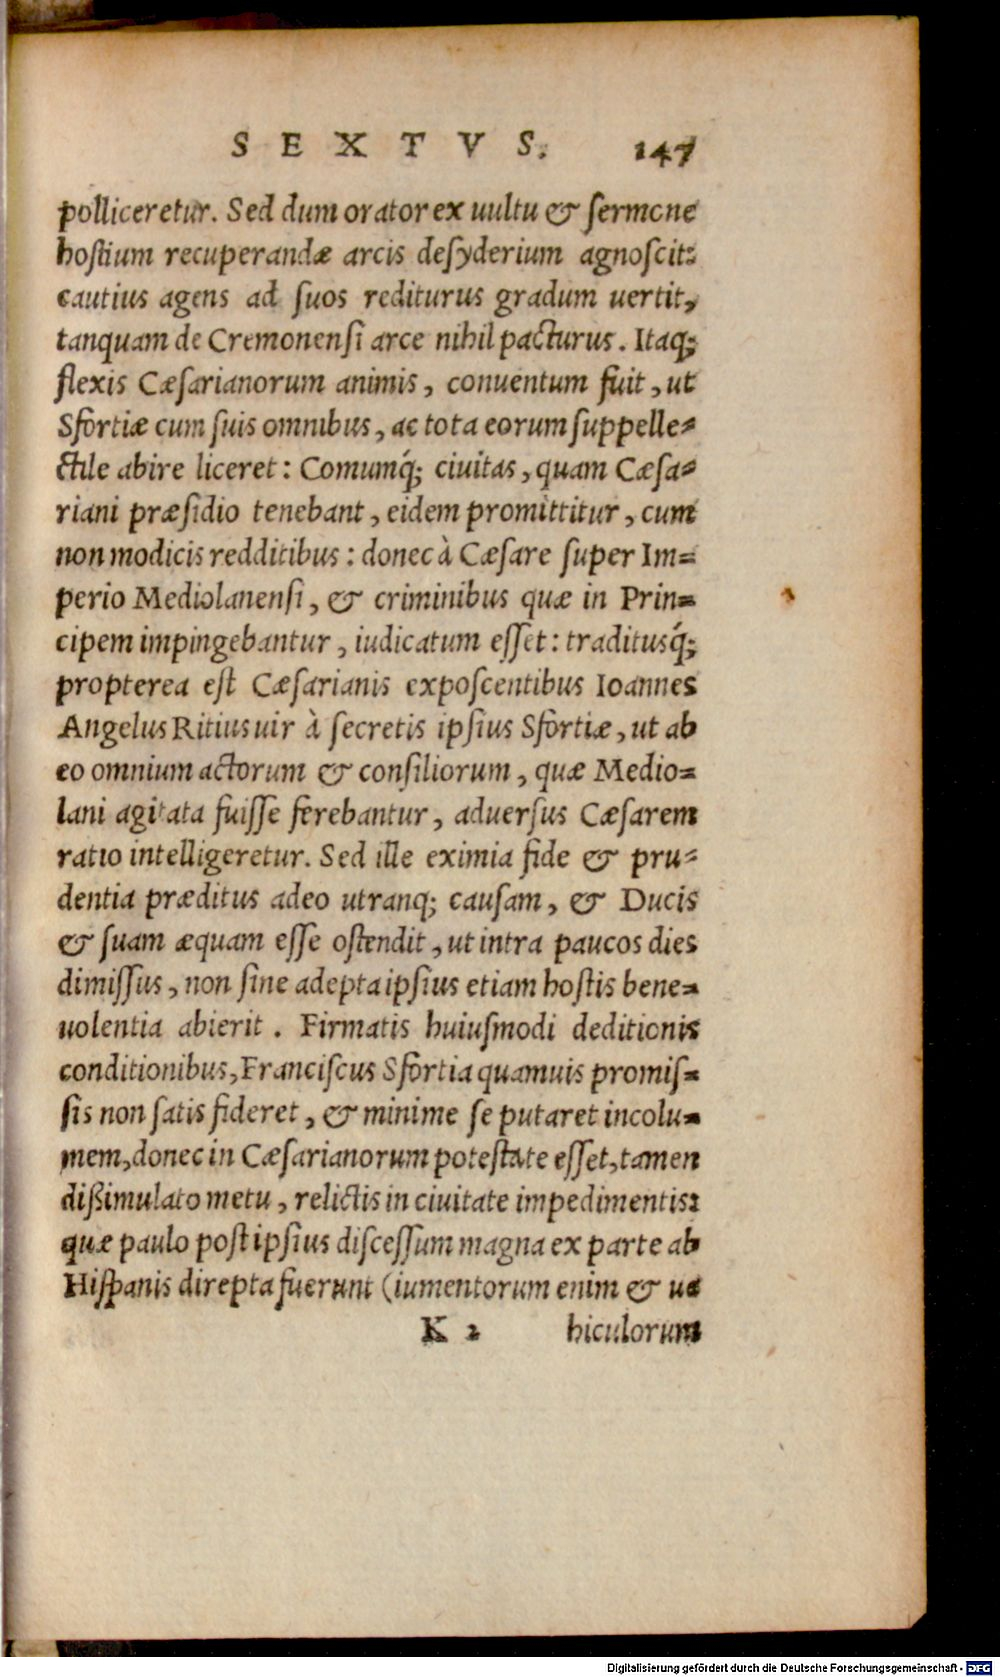 SEXTVS. 147
polliceretur. Sed dum orator ex uultu & sermone
hostium recuperandæ arcis desyderium agnoscit:
cautius agens ad suos rediturus gradum uertit,
tanquam de Cremonensi arce nihil pacturus. Itaq;
flexis Cæsarianorum animis, conuentum fuit, ut
Sfortiæ cum suis omnibus, ac tota eorum suppelle-
ctile abire liceret: Comumq́; ciuitas, quam Cæsa-
riani præsidio tenebant, eidem promittitur, cum
non modicis redditibus: donec à Cæsare super Im-
perio Mediolanensi, & criminibus quæ in Prin-
cipem impingebantur, iudicatum esset: traditusq́;
propterea est Cæsarianis exposcentibus Ioannes
Angelus Ritius uir à secretis ipsius Sfortiæ, ut ab
eo omnium actorum & consiliorum, quæ Medio-
lani agitata fuisse ferebantur, aduersus Cæsarem
ratio intelligeretur. Sed ille eximia fide & pru-
dentia præditus adeo utranq; causam, & Ducis
& suam æquam esse ostendit, ut intra paucos dies
dimissus, non sine adepta ipsius etiam hostis bene-
uolentia abierit. Firmatis huiusmodi deditionis
conditionibus, Franciscus Sfortia quamuis promis-
sis non satis fideret, & minime se putaret incolu-
mem, donec in Cæsarianorum potestate esset, tamen
dißimulato metu, relictis in ciuitate impedimentis:
quæ paulo post ipsius discessum magna ex parte ab
Hispanis direpta fuerunt (iumentorum enim & ue
K 2 hiculorum
Digitalisierung gefördert durch die Deutsche Forschungsgemeinschaft - DFG